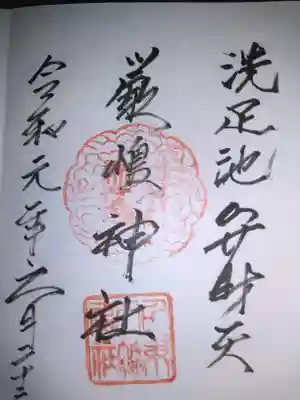 洗足池の弁財天
嚴嶋神社
令和元年六月二十二